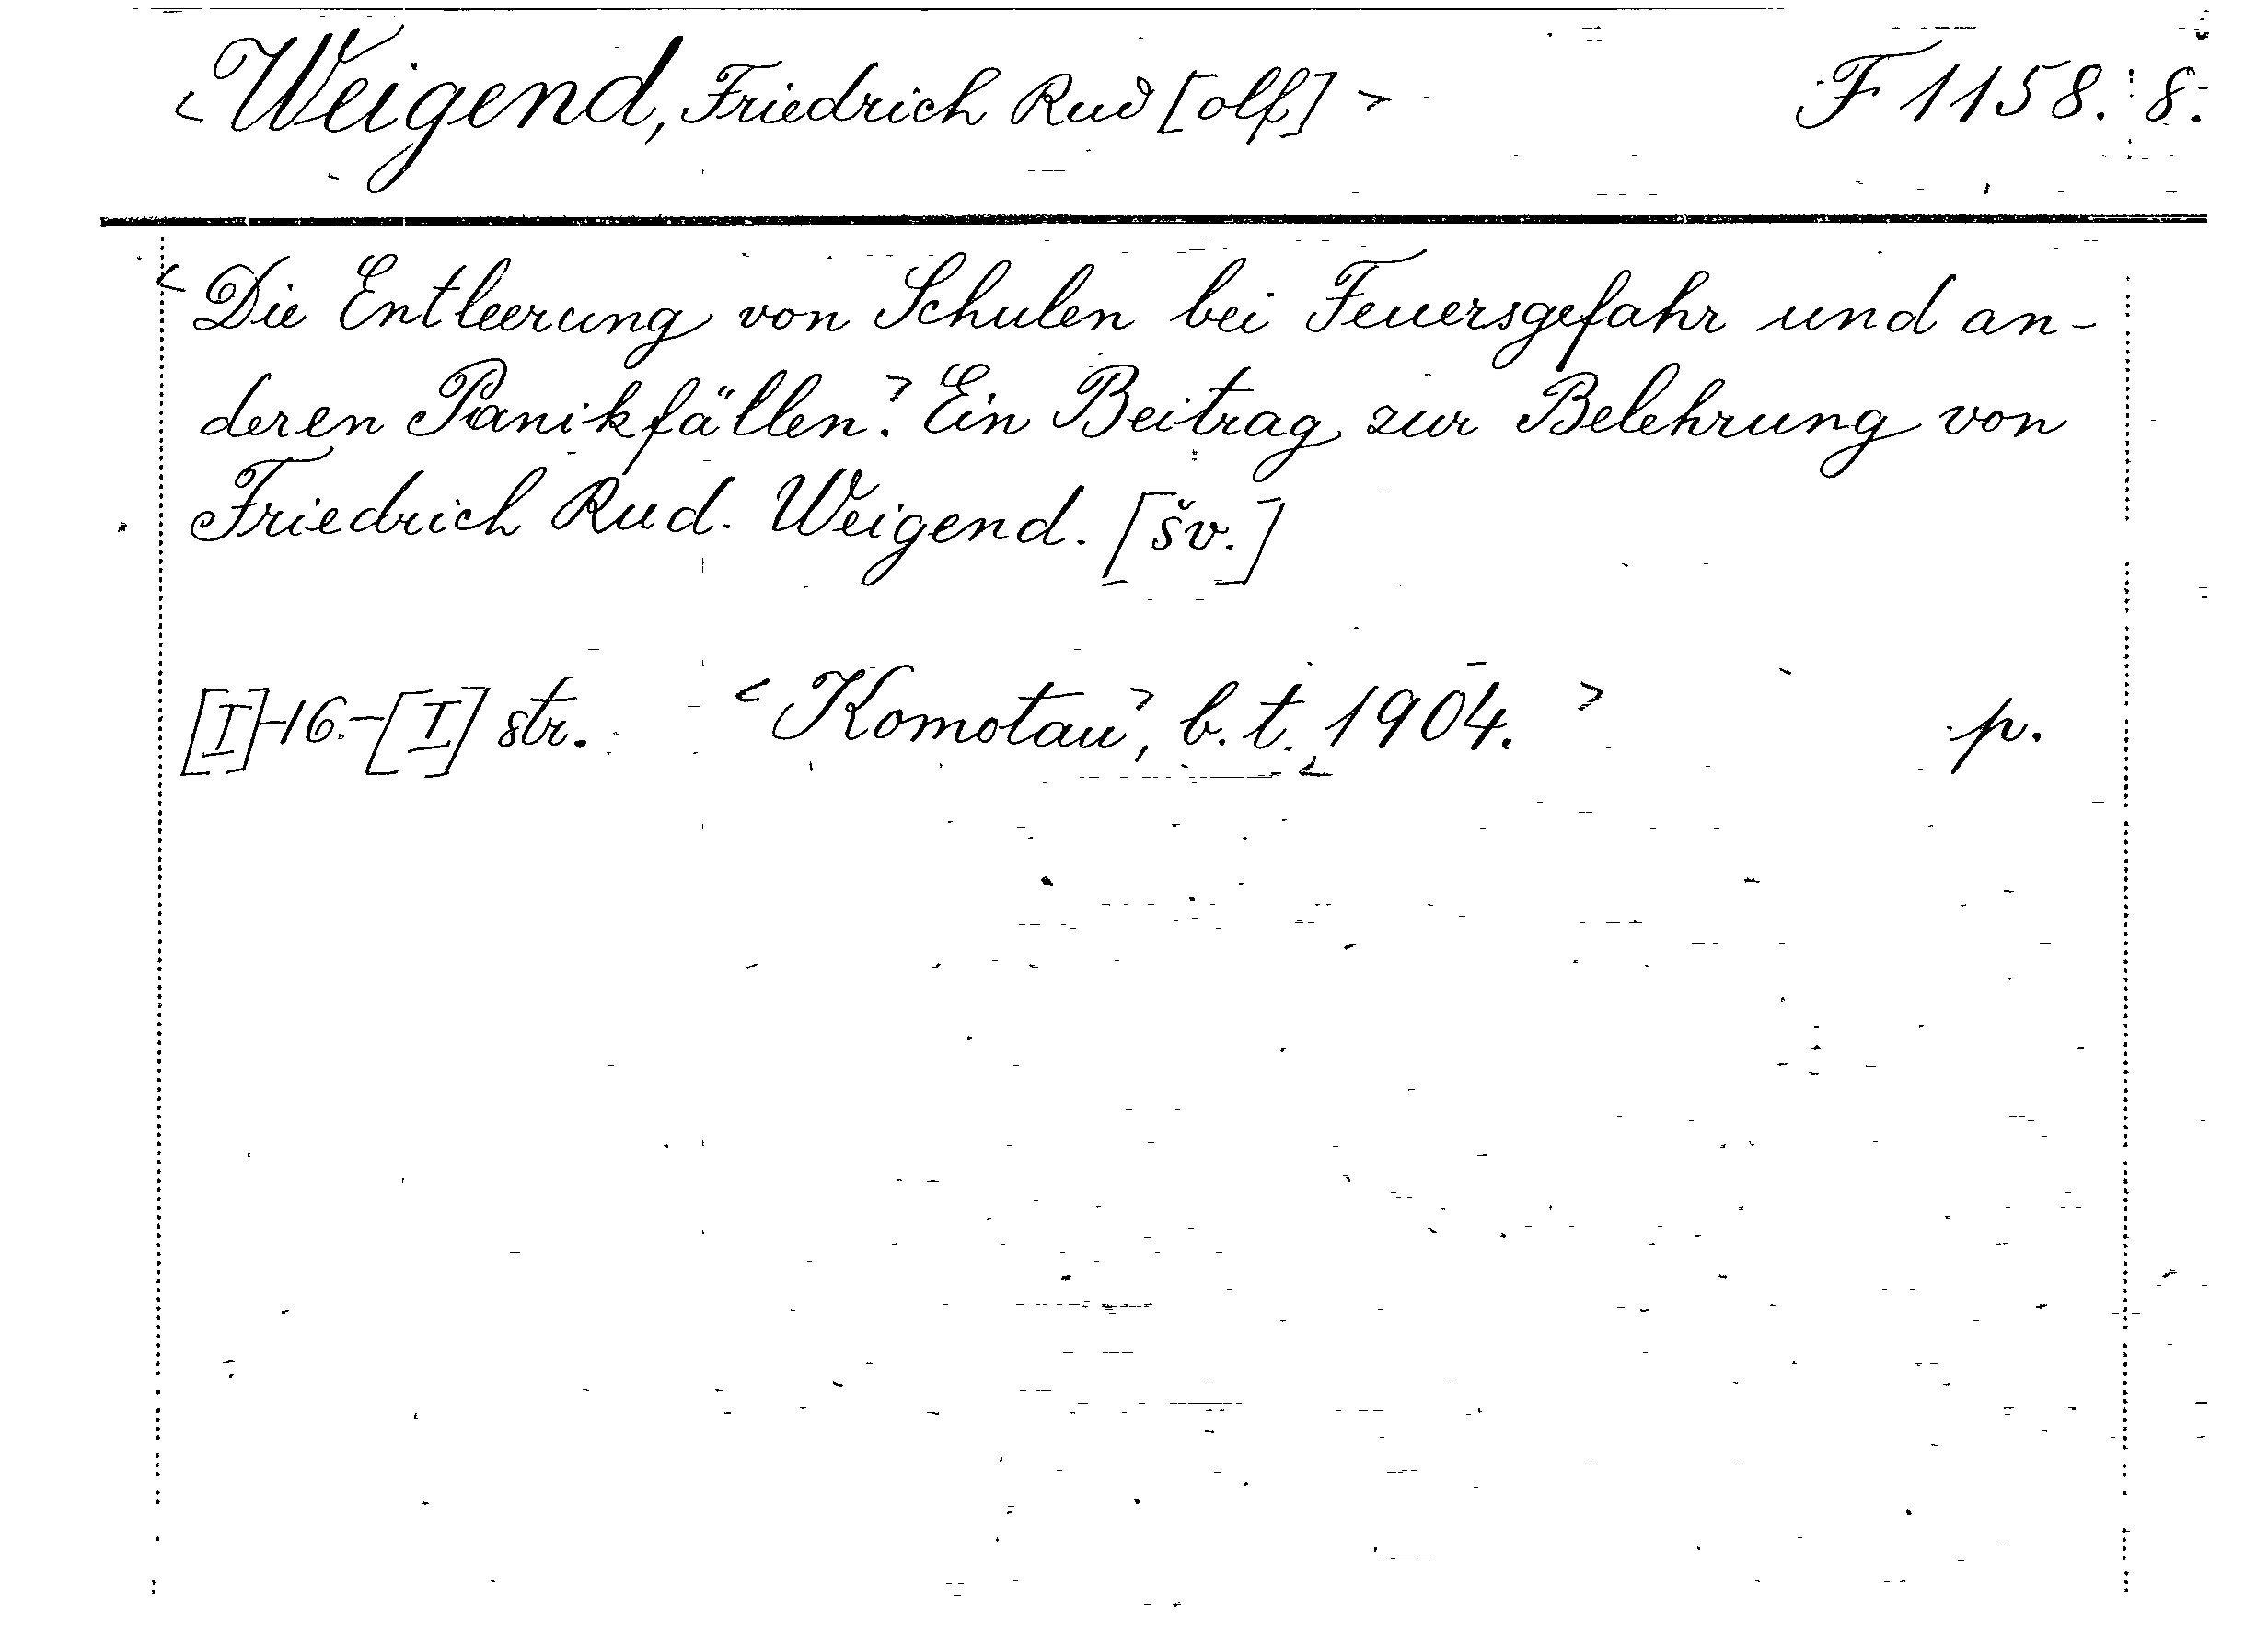 <Weigend, Friedrich Rud[olf]> F 1158. 8.
<Die Entleerung von Schulen bei Feuersgefahr und an-
deren Panikfällen.> Ein Beitrag zur Belehrung von
Friedrich Rud. Weigend. [šv.]
[I]-16.-[I] str. <Komotau>, b. t. <1904.> p.